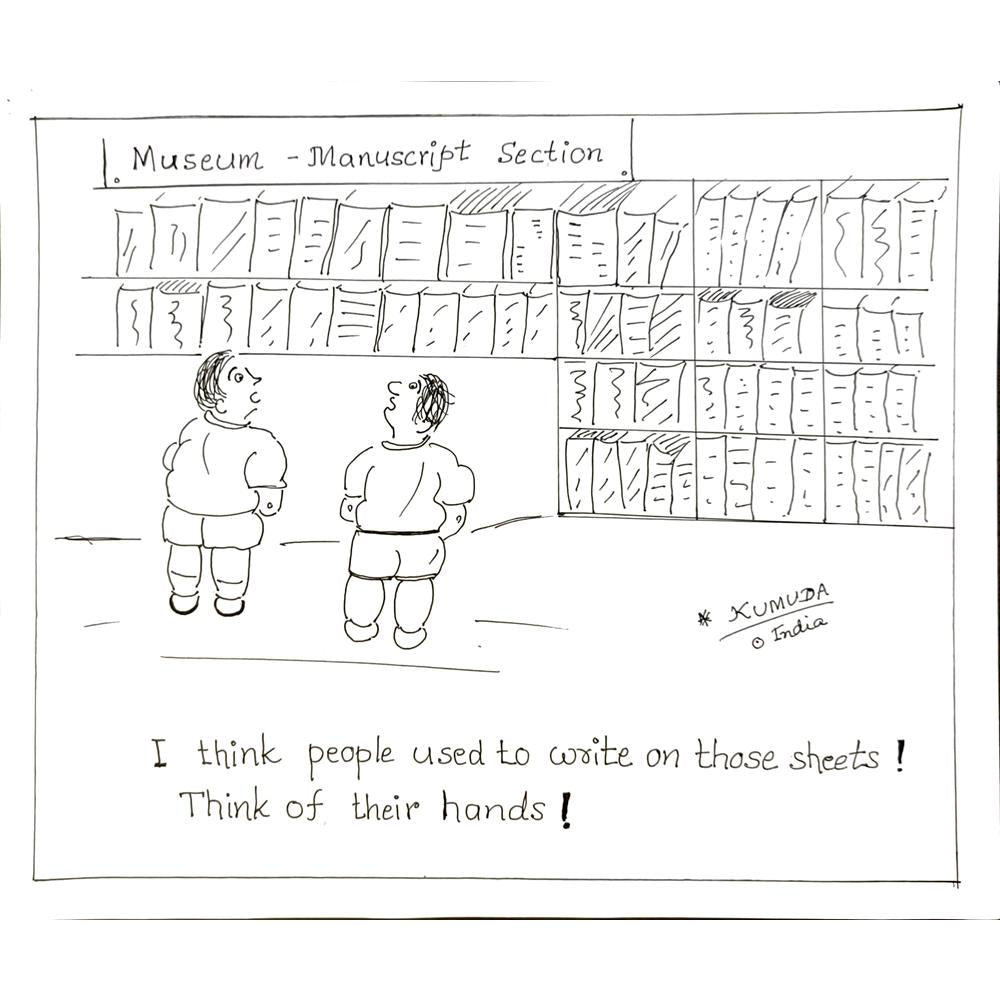 Museum - Manuscript Section
* KUMUDA
© India
I think people used to write on those sheets !
Think of their hands !